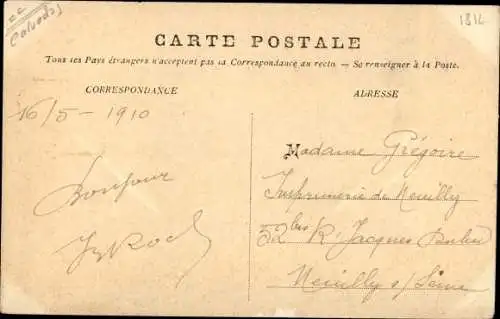 cc
Calvados
1814
CARTE POSTALE
Tous les Pays étrangers n'acceptent pas la Correspondance au recto. — Se renseigner à la Poste.
CORRESPONDANCE
ADRESSE
16/5 - 1910
Bonjour
Madame Grégoire
Imprimerie de Neuilly
52 bis R. Jacques Dulud
Neuilly s/ Seine